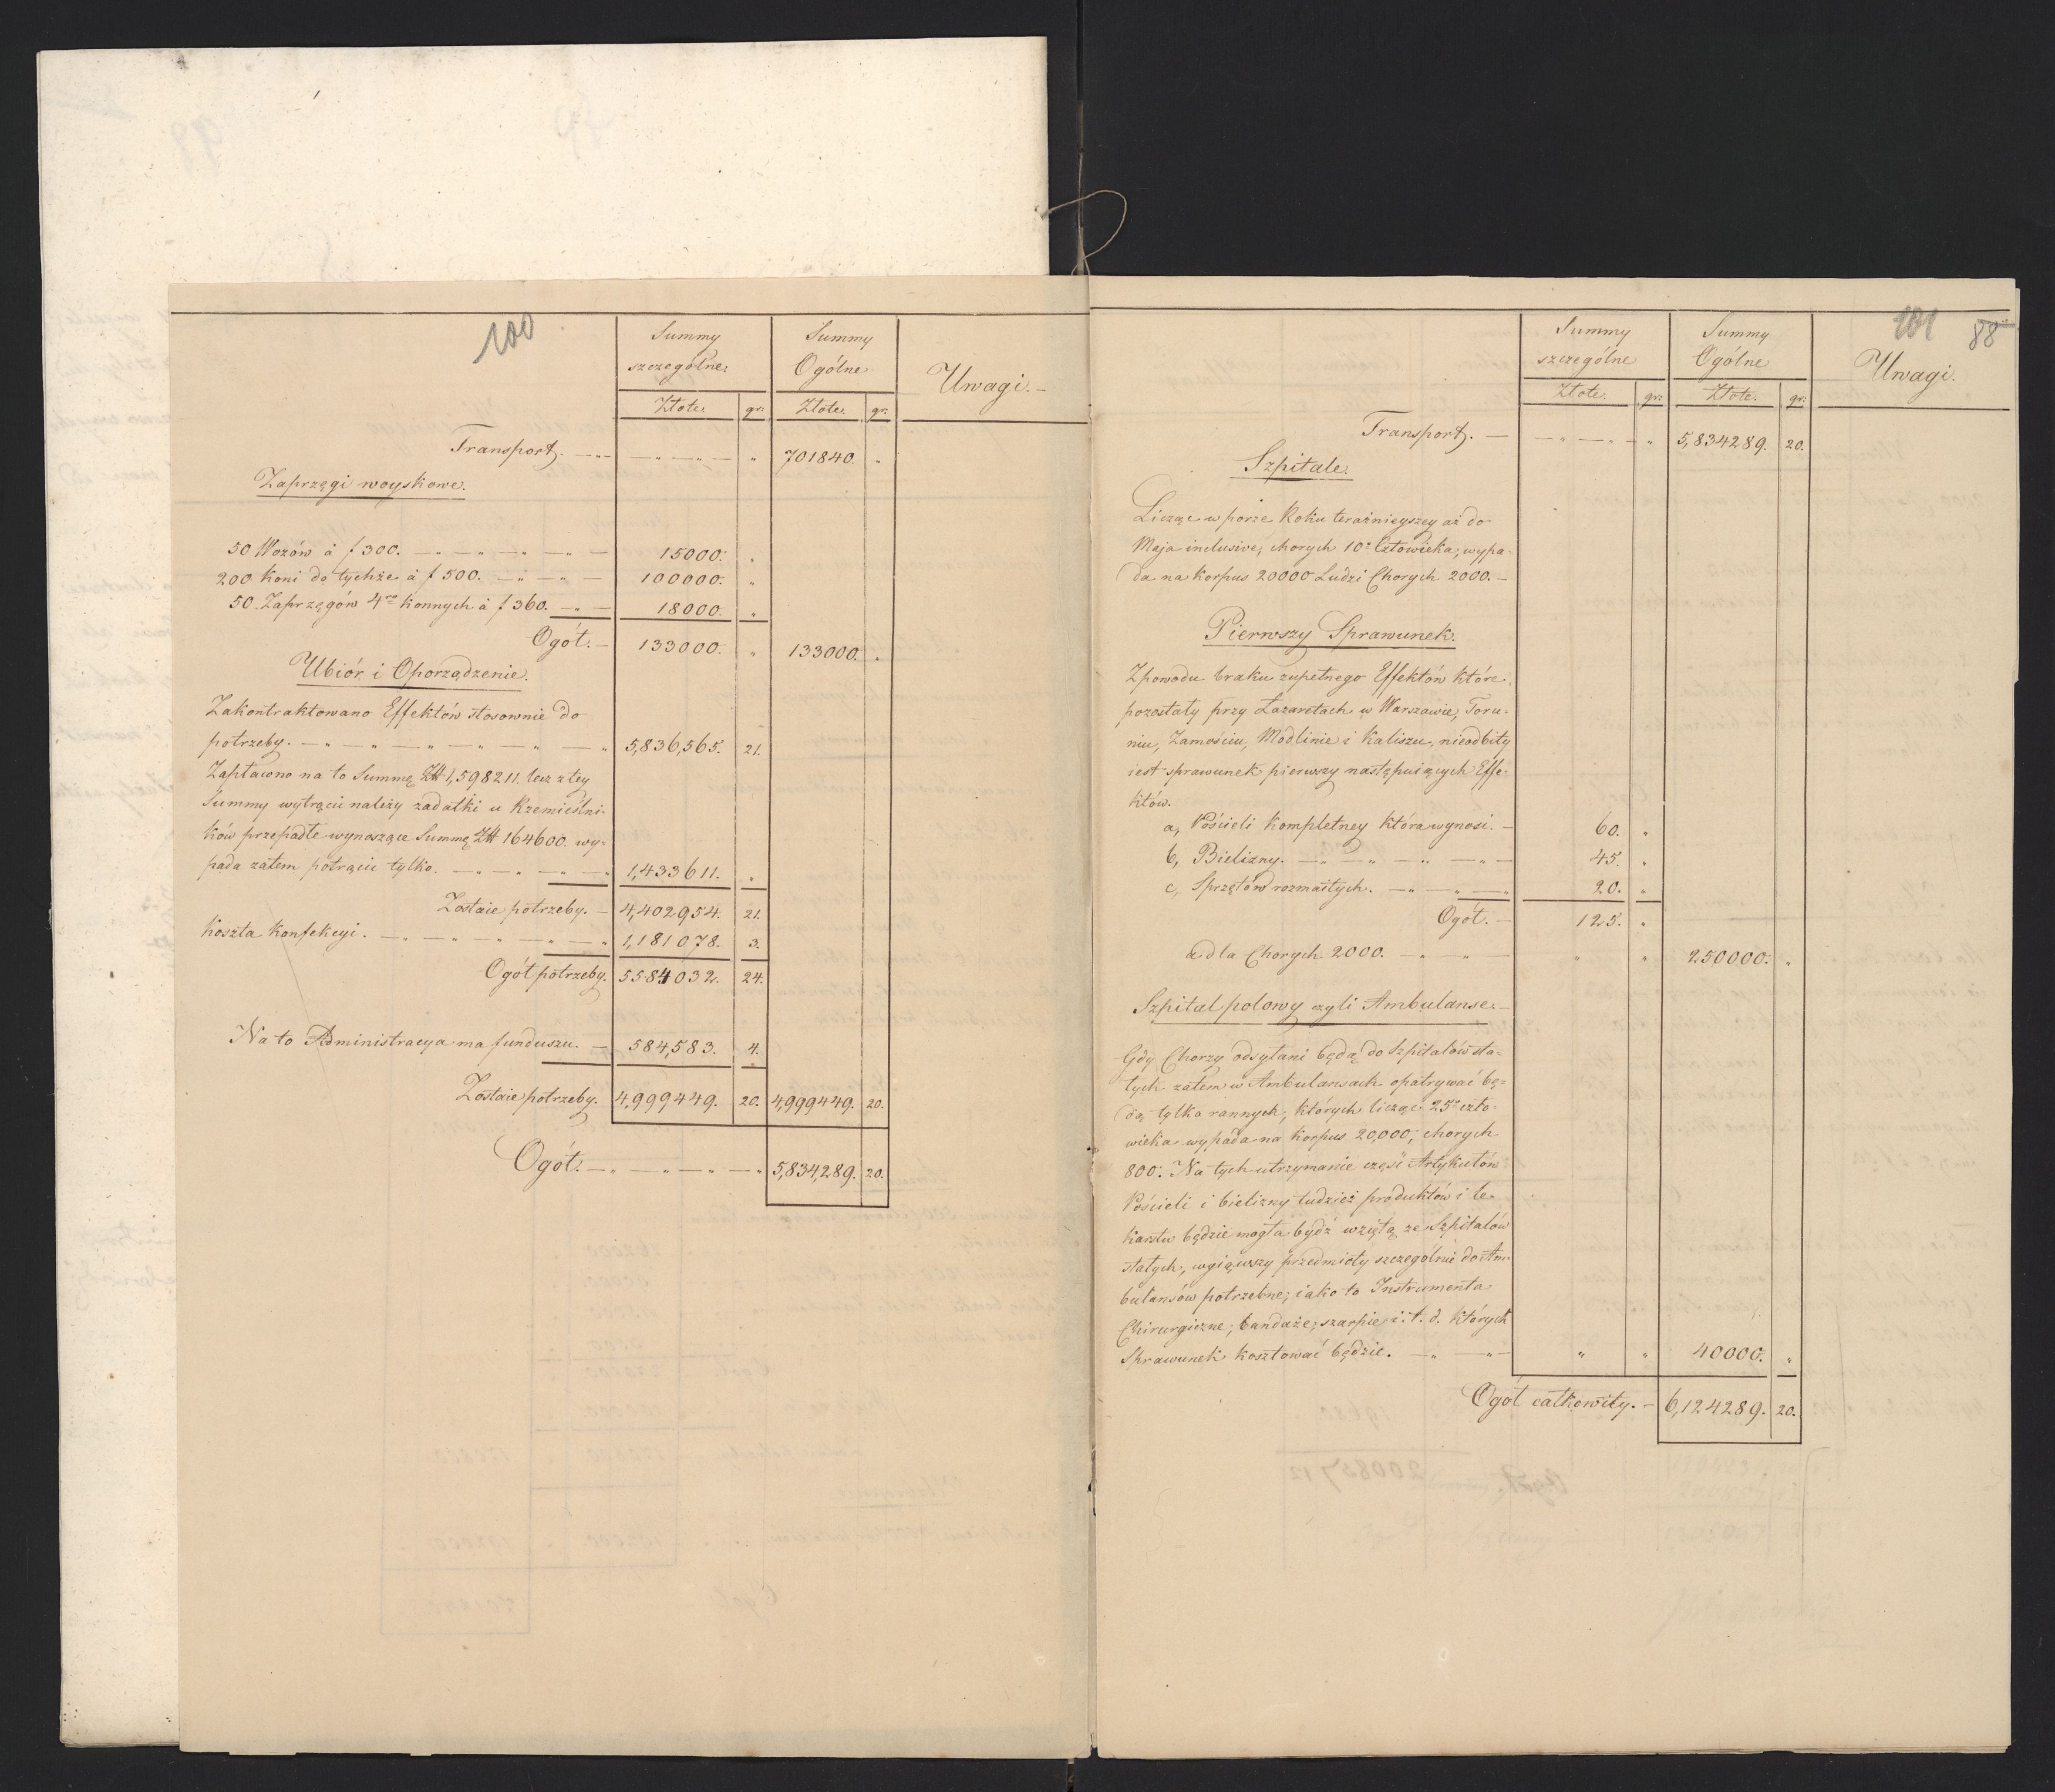 100
Summy szczególne: Summy Ogólne Uwagi.
Złote. gr: Złote. gr:
Transport. 701840. "
Zaprzęgi woyskowe.
50 Wozów à f 300. 15000. "
200 Koni do tychże à f 500. 100000. "
50. Zaprzęgów 4ro Konnych à f 360. 18000. "
Ogół. 133000. " 133000. "
Ubiór i Oporządzenie.
Zakontraktowano Effektów stosownie do
potrzeby. 5,836,565. 21.
Zapłacono na to Summę Zł 1,598211. lecz z tey
Summy wytrącić należy zadatki u Rzemieślni-
ków przepadłe wynoszące Summę Zł 164600. wy-
pada zatem potrącić tylko. 1,433611. "
Zostaie potrzeby. 4,402954. 21.
Koszta Konfekcyi. 1,181078. 3.
Ogół potrzeby. 5584032. 24.
Na to Administracya ma funduszu. 584,583. 4.
Zostaie potrzeby. 4,999,449. 20. 4,999449. 20.
Ogół. 5,834,289. 20.
101 88
Summy szczególne Summy Ogólne Uwagi.
Złote. gr: Złote. gr:
Transport. " 5,834289. 20.
Szpitale.
Licząc w porze Roku teraźnieyszey aż do
Maja inclusive, chorych 10o Człowieka, wypa-
da na Korpus 20000 Ludzi Chorych 2000.
Pierwszy Sprawunek.
Z powodu braku zupełnego Effektów które
pozostały przy Lazaretach w Warszawie, Toru-
niu, Zamościu, Modlinie i Kaliszu, nieodbity
iest sprawunek pierwszy następuiących Effe-
któw.
a, Pościeli Kompletney która wynosi. 60. "
b, Bielizny. 45. "
c, Sprzętów rozmaitych. 20. "
Ogół. 125. "
a dla Chorych 2000. " " 250000. "
Szpital polowy czyli Ambulanse.
Gdy Chorzy odsyłani będą do Szpitalów sta-
łych zatem w Ambulansach opatrywać bę-
dą tylko rannych, których licząc 25o czło-
wieka wypada na Korpus 20,000, chorych
800. Na tych utrzymanie część Artykułów
Pościeli i bielizny tudzież produktów i le-
karstw będzie mogła bydź wziętą ze Szpitalów
stałych, wyiąwszy przedmioty szczególnie do Am-
bulansów potrzebne, iako to Instrumenta
Chirurgiczne, bandaże, szarpie, i. t. d. których
Sprawunek kosztować będzie. " " 40000. "
Ogół całkowity. 6,124289. 20.